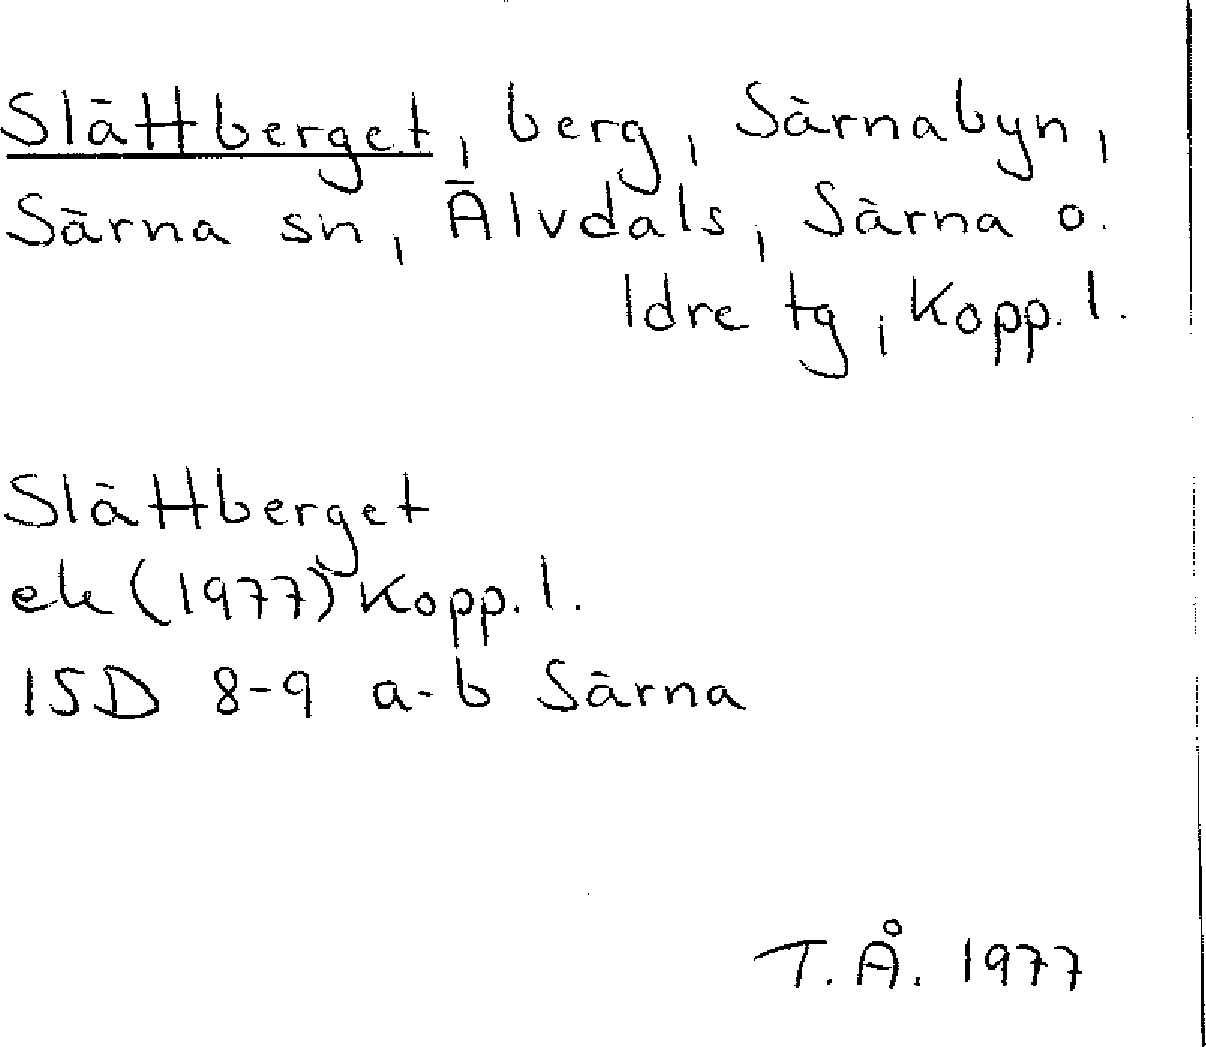 Slättberget, berg, Särnabyn,
Särna sn, Älvdals, Särna o.
Idre tg, Kopp. l.
Slättberget
ek (1977) Kopp. l.
15D 8-9 a-b Särna
T.Å. 1977